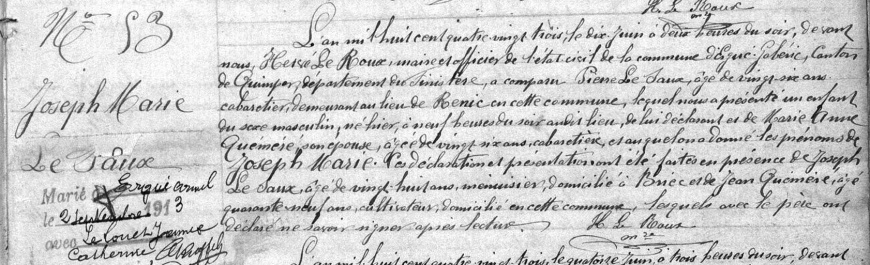 H. Le Roux
No 53
Joseph Marie
Le Faux
Marié à Ergué Armel
le 2 septembre 1913
avec Le Jeanne
Catherine
L'an mil huit cent quatre vingt trois, le dix juin à deux heures du soir, devant
nous, Hervé Le Roux, maire et officier de l'état civil de la commune d'Ergué-Gabéric, Canton
de Quimper, département du Finistère, a comparu Pierre Le Faux, âgé de vingt six ans
cabaretier, demeurant au lieu de Kenic en cette commune, lequel nous a présenté un enfant
du sexe masculin, né hier, à neuf heures du soir audit lieu, de lui déclarant et de Marie Anne
Quéméré son épouse, âgée de vingt six ans, cabaretière, et auquel on a donné les prénoms de
Joseph Marie. Ces déclaration et présentation ont été faites en présence de Joseph
Le Faux, âgé de vingt huit ans, menuisier, domicilié à Briec et de Jean Quéméré, âgé
quarante neuf ans, cultivateur, domicilié en cette commune, lesquels avec le père ont
déclaré ne savoir signer après lecture.
H. Le Roux
L'an mil huit cent quatre vingt trois, le quatorze juin, à trois heures du soir, devant